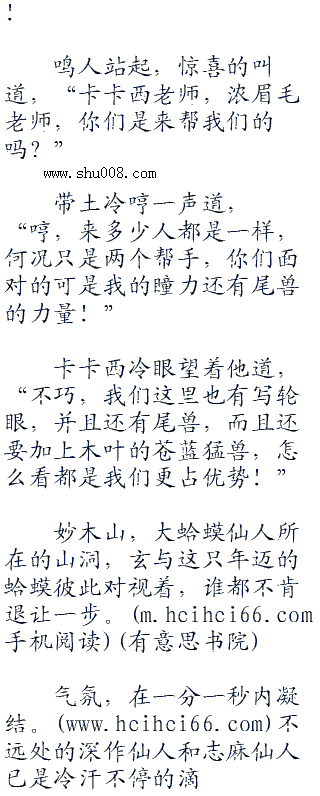 ！
鸣人站起，惊喜的叫
道，“卡卡西老师，浓眉毛
老师，你们是来帮我们的
吗？”
www.shu008.com
带土冷哼一声道，
“哼，来多少人都是一样，
何况只是两个帮手，你们面
对的可是我的瞳力还有尾兽
的力量！”
卡卡西冷眼望着他道，
“不巧，我们这里也有写轮
眼，并且还有尾兽，而且还
要加上木叶的苍蓝猛兽，怎
么看都是我们更占优势！”
妙木山，大蛤蟆仙人所
在的山洞，玄与这只年迈的
蛤蟆彼此对视着，谁都不肯
退让一步。(m.hcihci66.com
手机阅读)(有意思书院)
气氛，在一分一秒内凝
结。(www.hcihci66.com)不
远处的深作仙人和志麻仙人
已是冷汗不停的滴